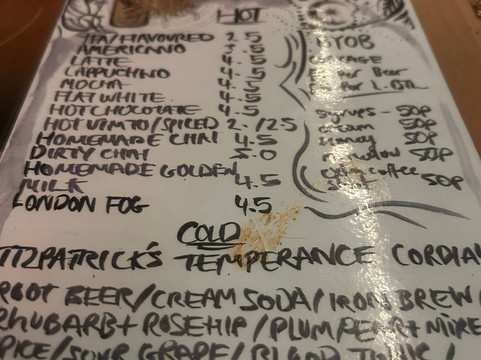 HOT
TEA/FLAVOURED 2.5
AMERICANO 3.5
LATTE 4.5
CAPPUCHINO 4.5
MOCHA 4.5
FLAT WHITE 4.5
HOT CHOCOLATE 4.5
HOT VIMTO/SPICED 2./25
HOMEMADE CHAI 4.5
DIRTY CHAI 5.0
HOMEMADE GOLDEN
MILK 4.5
LONDON FOG 4.5
BYOB
per Beer
per 1.
Syrups - 50P
cream 50P
50P
50P
coffee
50P
COLD
TZPATRICK'S TEMPERANCE CORDIA
ROOT BEER/CREAM SODA/IRON BREW/
RHUBARB+ ROSEHIP/PLUM PEAR+ MIXE
PICE/SOUR GRAPE/BLOOD